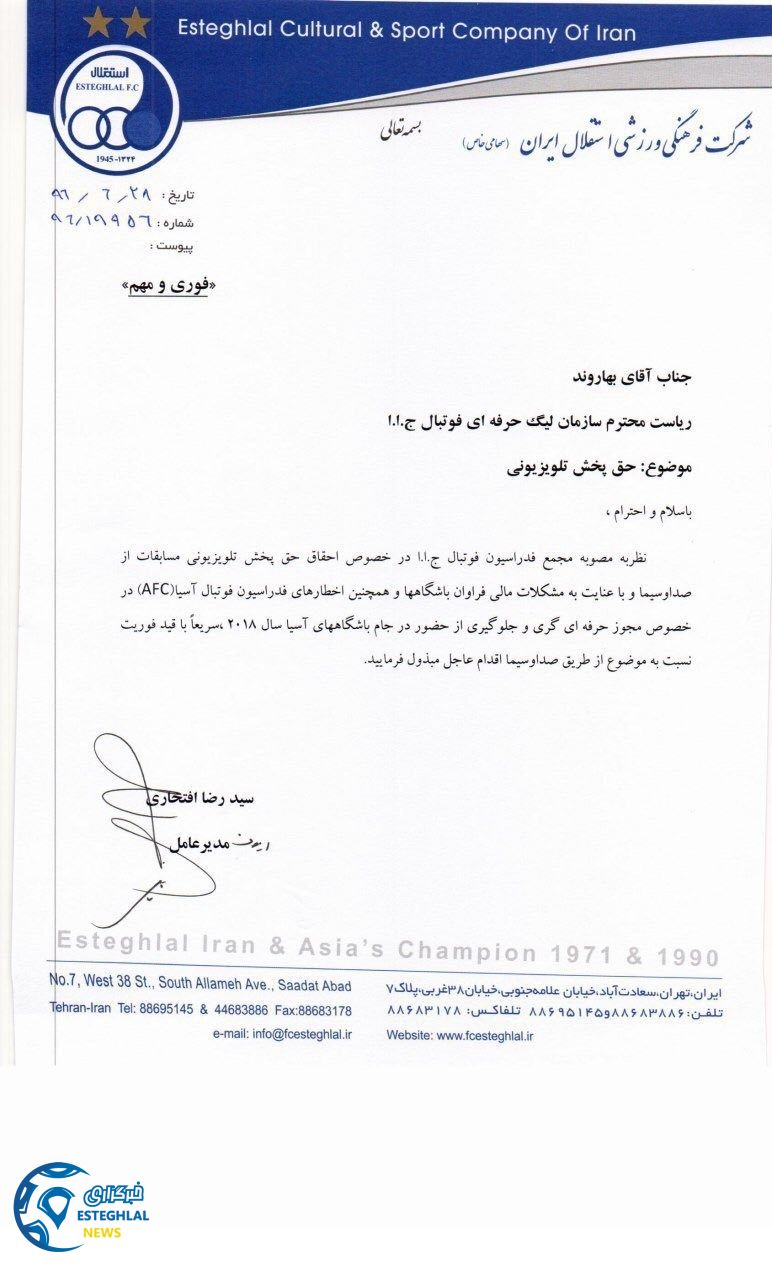 Esteghlal Cultural & Sport Company Of Iran
استقلال
ESTEGHLAL F.C
1945-۱۳۲۴
شرکت فرهنگی ورزشی استقلال ایران (سهامی خاص)
بسمه تعالی
تاریخ: ۹۶/۶/۲۸
شماره: ۹۶/۱۹۹۵۶
پیوست:
«فوری و مهم»
جناب آقای بهاروند
ریاست محترم سازمان لیگ حرفه ای فوتبال ج.ا.ا
موضوع: حق پخش تلویزیونی
باسلام و احترام ،
نظربه مصوبه مجمع فدراسیون فوتبال ج.ا.ا در خصوص احقاق حق پخش تلویزیونی مسابقات از
صداوسیما و با عنایت به مشکلات مالی فراوان باشگاهها و همچنین اخطارهای فدراسیون فوتبال آسیا(AFC) در
خصوص مجوز حرفه ای گری و جلوگیری از حضور در جام باشگاههای آسیا سال ۲۰۱۸ ،سریعاً با قید فوریت
نسبت به موضوع از طریق صداوسیما اقدام عاجل مبذول فرمایید.
سید رضا افتخاری
مدیرعامل
Esteghlal Iran & Asia's Champion 1971 & 1990
No.7, West 38 St., South Allameh Ave., Saadat Abad
Tehran-Iran Tel: 88695145 & 44683886 Fax:88683178
e-mail: info@fcesteghlal.ir
ایران،تهران،سعادت‌آباد،خیابان علامه‌جنوبی،خیابان۳۸غربی،پلاک۷
تلفن:۸۸۶۸۳۸۸۶و۸۸۶۹۵۱۴۵ تلفاکس: ۸۸۶۸۳۱۷۸
Website: www.fcesteghlal.ir
خبرگزاری
ESTEGHLAL
NEWS